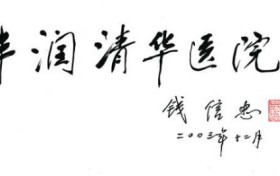 丰润清华医院
钱信忠
二〇〇三年十二月